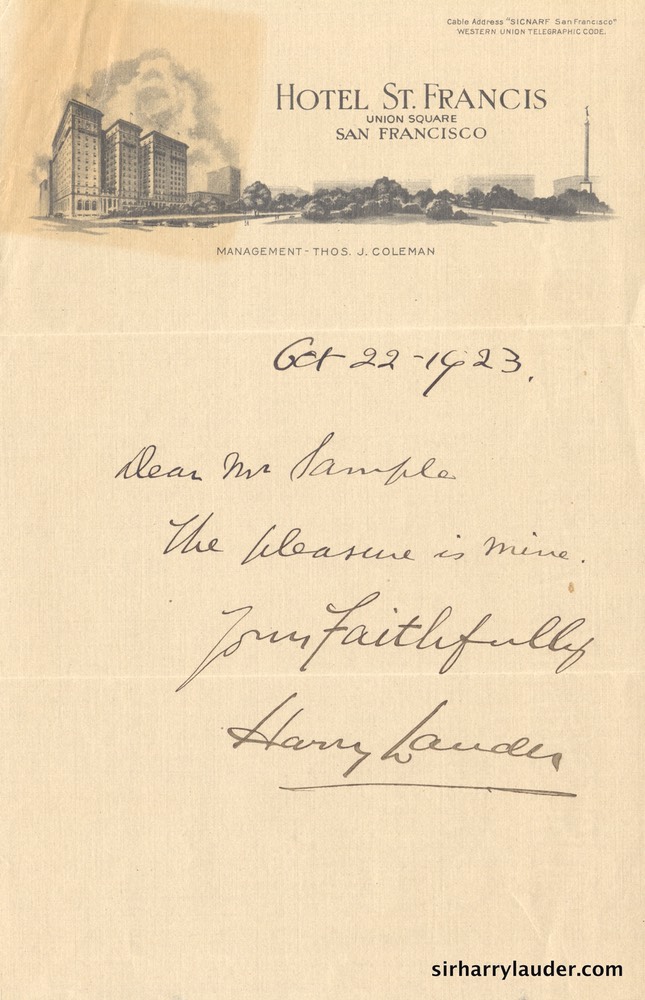 Cable Address "SICNARF San Francisco"
WESTERN UNION TELEGRAPHIC CODE.
HOTEL ST. FRANCIS
UNION SQUARE
SAN FRANCISCO
MANAGEMENT - THOS. J. COLEMAN
Oct 22 - 1923.
Dear Mr Sample
The pleasure is mine.
Yours Faithfully
Harry Lauder
sirharrylauder.com